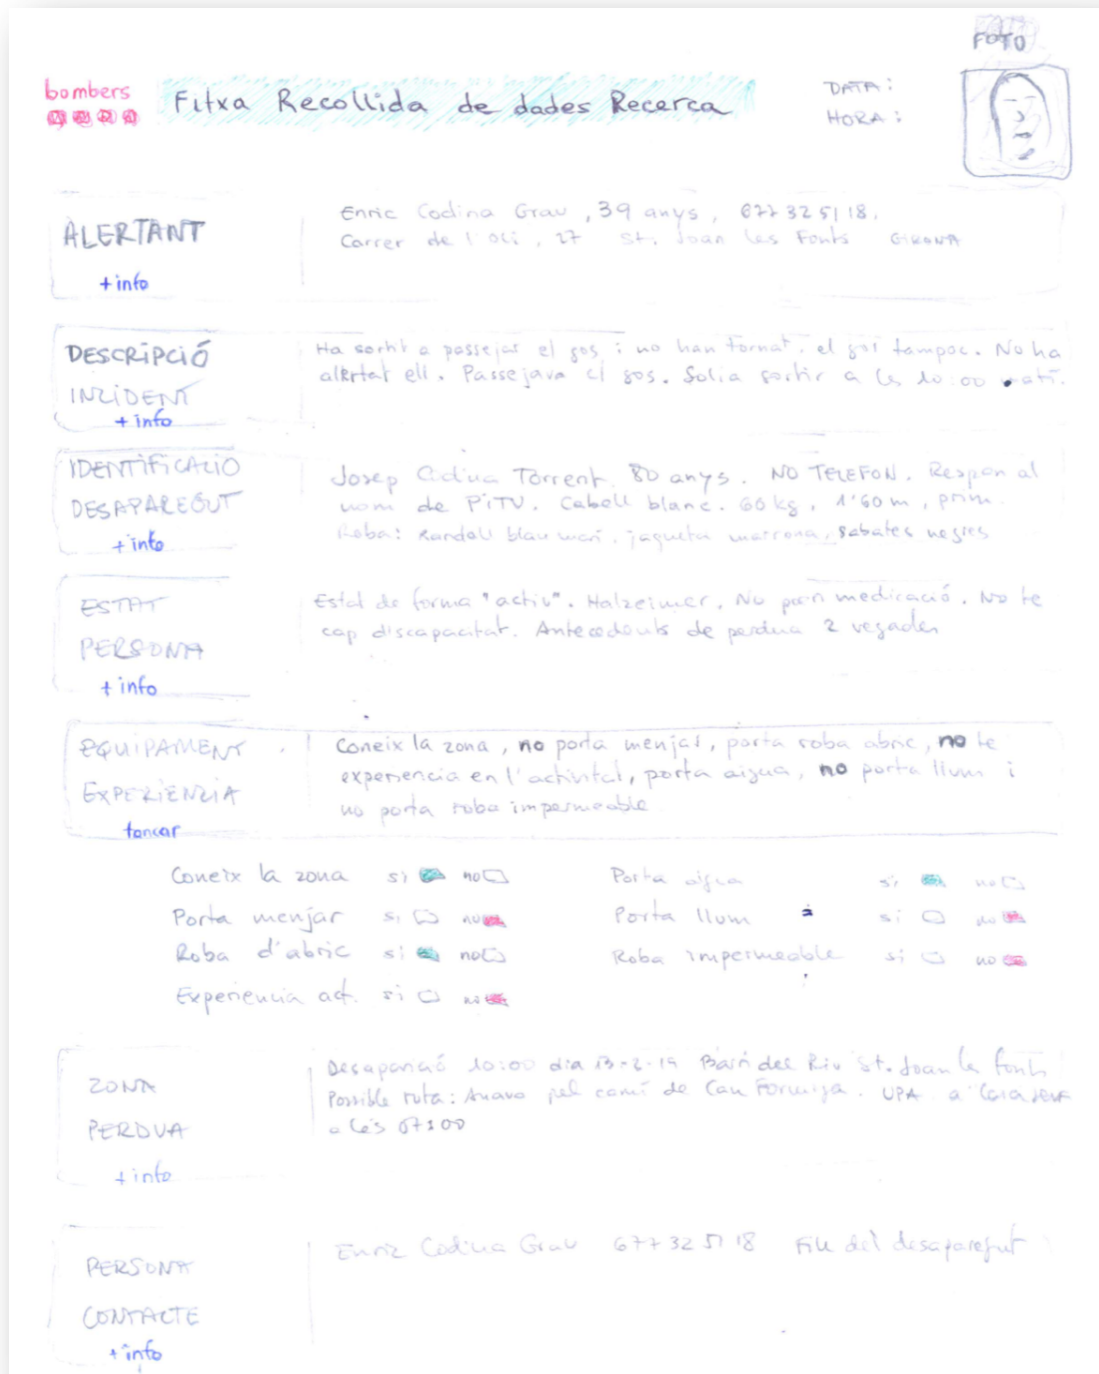 FOTO
bombers
Fitxa Recollida de dades Recerca
DATA:
HORA:
ALERTANT
+ info
Enric Codina Grau, 39 anys, 677 32 51 18.
Carrer de l'oci, 27 St. Joan les Fonts GIRONA
DESCRIPCIÓ
INCIDENT
+ info
Ha sortit a passejar el gos i no han tornat, el gos tampoc. No ha
alertat ell. Passejava el gos. Solia sortir a les 10:00 matí.
IDENTIFICACIO
DESAPAREGUT
+ info
Josep Codina Torrent. 80 anys. NO TELEFON. Respon al
nom de PITU. Cabell blanc. 60 kg, 1'60 m, prim.
Roba: blau marí, jaqueta marrona, sabates negres
ESTAT
PERSONA
+ info
Estat de forma "actiu". Halzeimer. No pren medicació. No te
cap discapacitat. Antecedents de perdua 2 vegades
EQUIPAMENT
EXPERIENCIA
tancar
Coneix la zona, no porta menjar, porta roba abric, no te
experiencia en l'activitat, porta aigua, no porta llum i
no porta roba impermeable
Coneix la zona si no
Porta aigua si no
Porta menjar si no
Porta llum si no
Roba d'abric si no
Roba impermeable si no
Experiencia act. si no
ZONA
PERDUA
+ info
Desaparició 10:00 dia 13-2-19 Barri del Riu St. Joan les fonts
Possible ruta: Anava pel camí de Can Formiga. UPA a casa seva
a les 07:00
PERSONA
CONTACTE
+ info
Enric Codina Grau 677 32 51 18 Fill del desaparegut